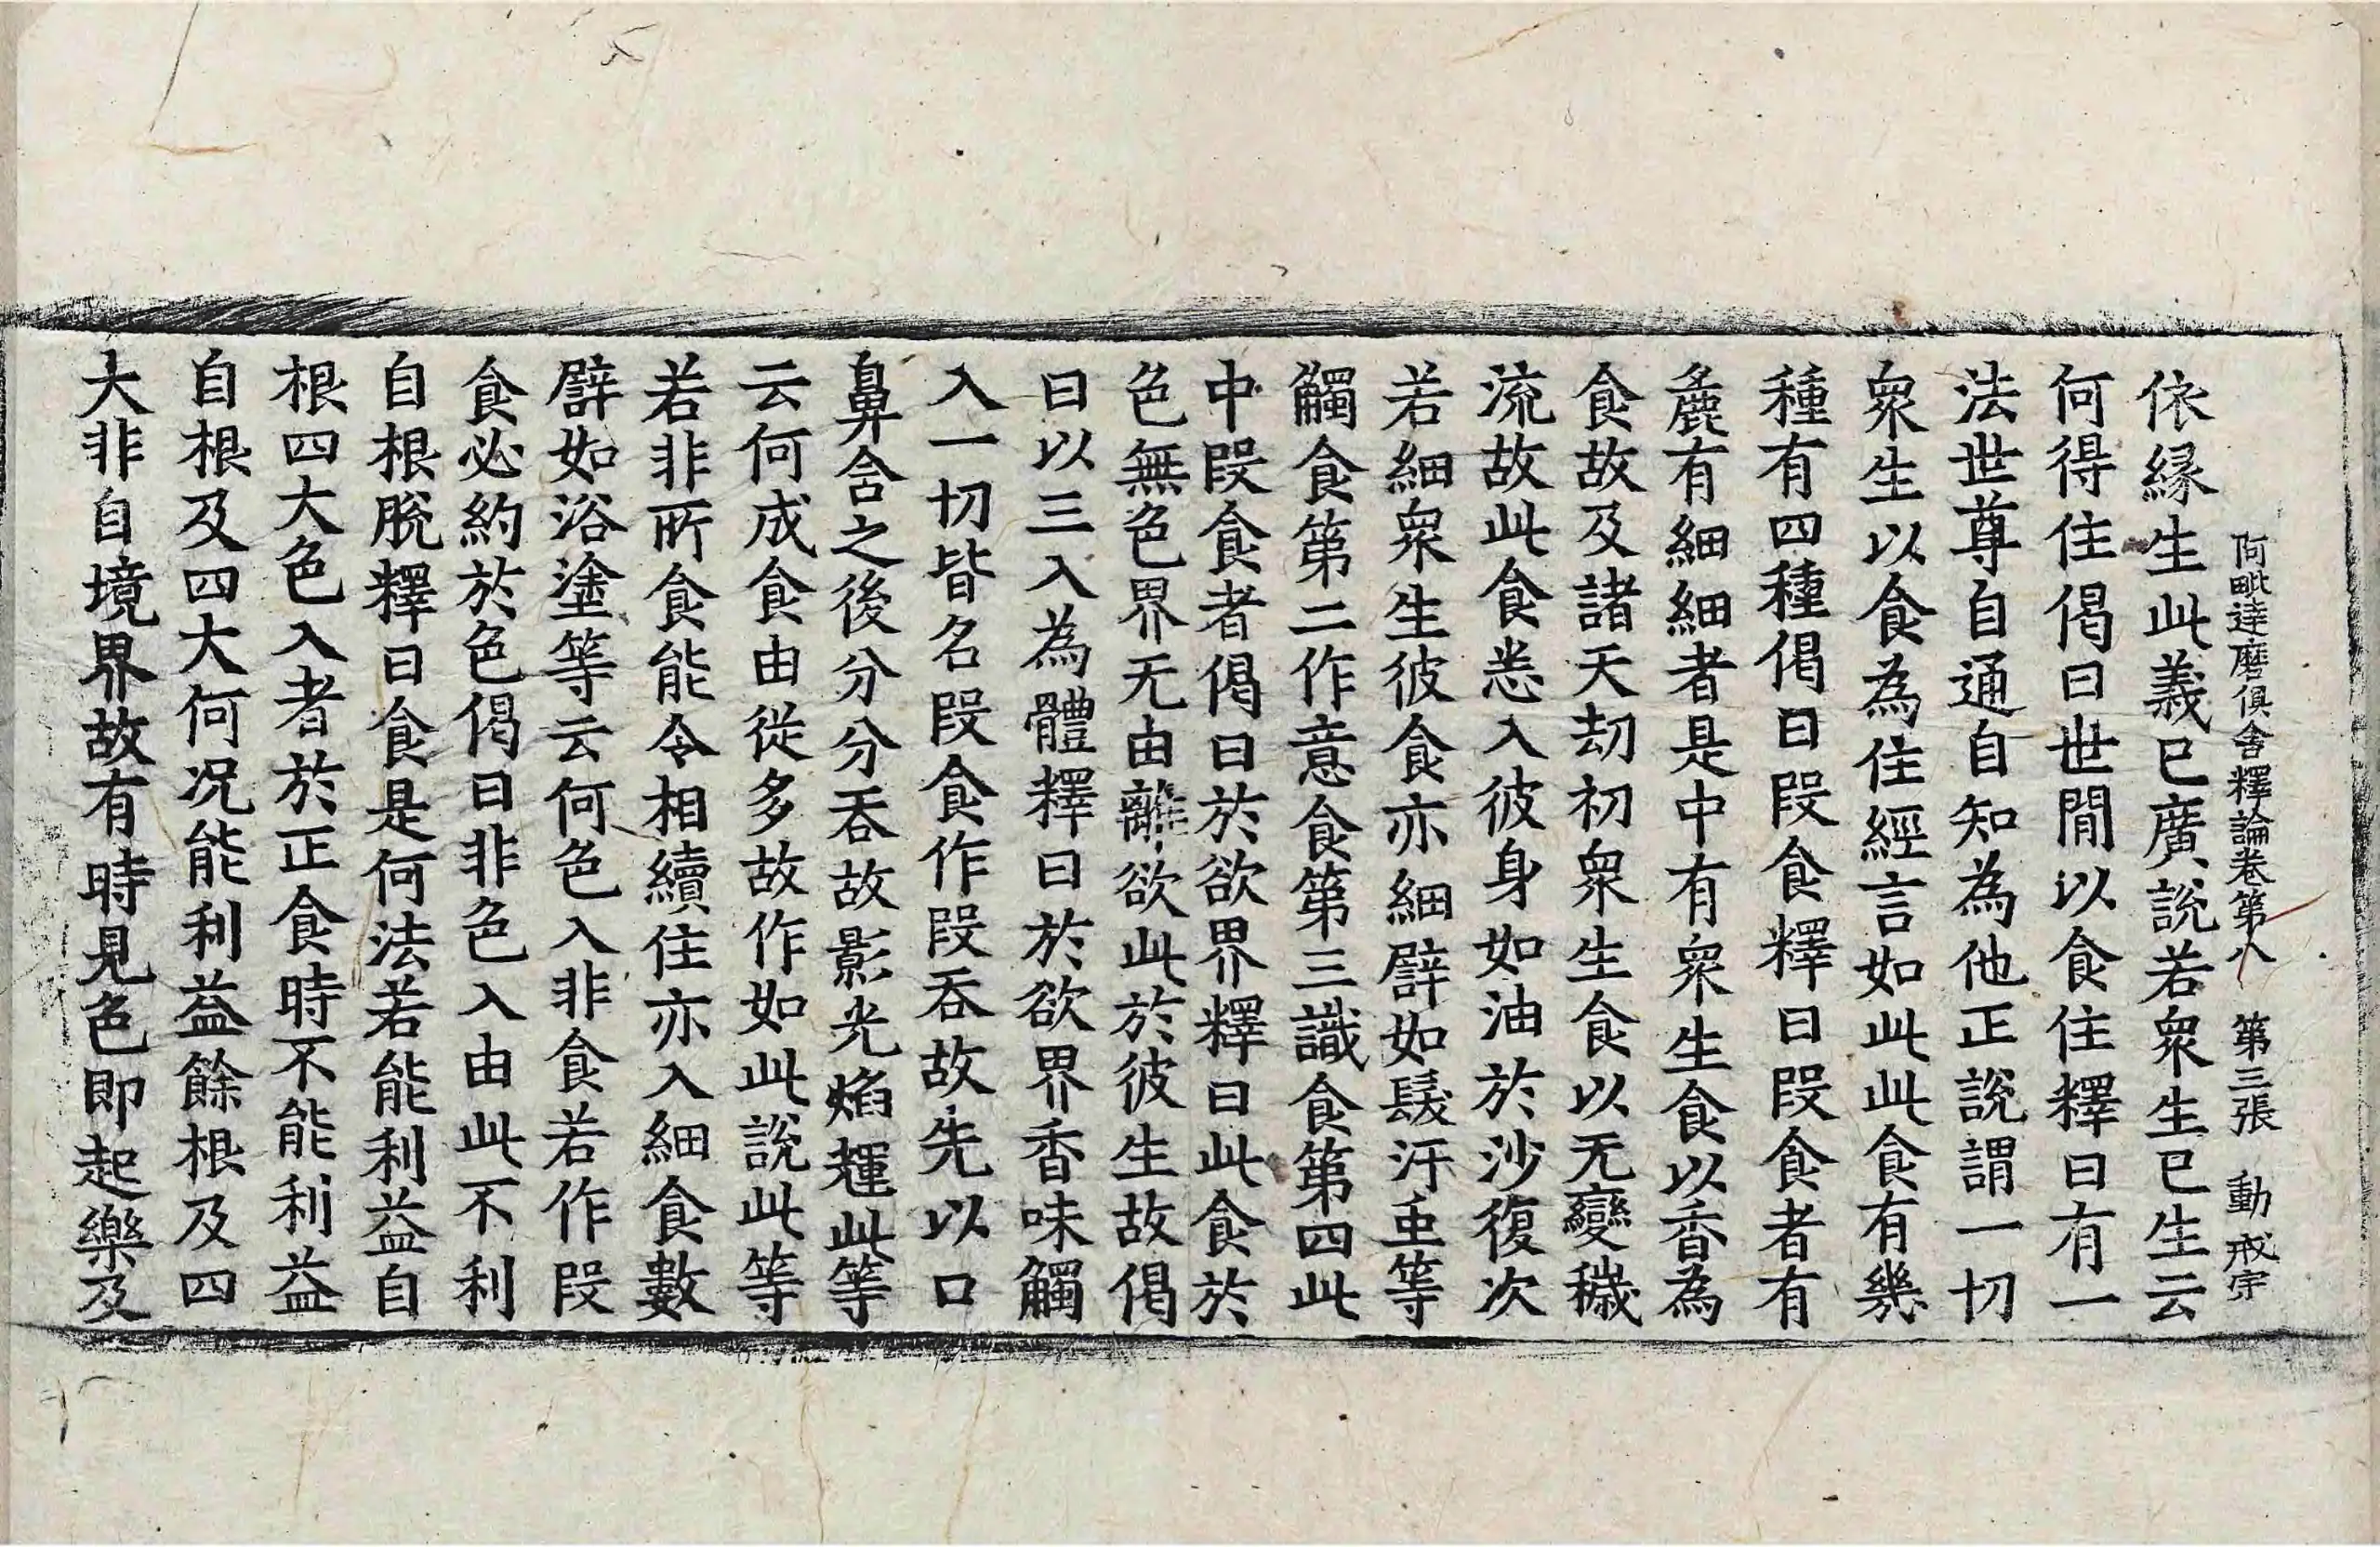 阿毗達磨俱舍釋論卷第八　第三張　動　戒安
依縁生此義已廣說若衆生已生云
何得住偈曰世間以食住釋曰有一
法世尊自通自知為他正說謂一切
衆生以食為住經言如此此食有幾
種有四種偈曰段食釋曰段食者有
麁有細細者是中有衆生食以香為
食故及諸天劫初衆生食以无變穢
流故此食悉入彼身如油於沙復次
若細衆生彼食亦細譬如髲汙䖝等
觸食第二作意食第三識食第四此
中段食者偈曰於欲界釋曰此食於
色無色界无由離欲此於彼生故偈
曰以三入為體釋曰於欲界香味觸
入一切皆名段食作段吞故先以口
鼻含之後分分吞故影光焰輝此等
云何成食由從多故作如此說此等
若非所食能令相續住亦入細食數
譬如浴塗等云何色入非食若作段
食必約於色偈曰非色入由此不利
自根脫釋曰食是何法若能利益自
根四大色入者於正食時不能利益
自根及四大何況能利益餘根及四
大非自境界故有時見色即起樂及